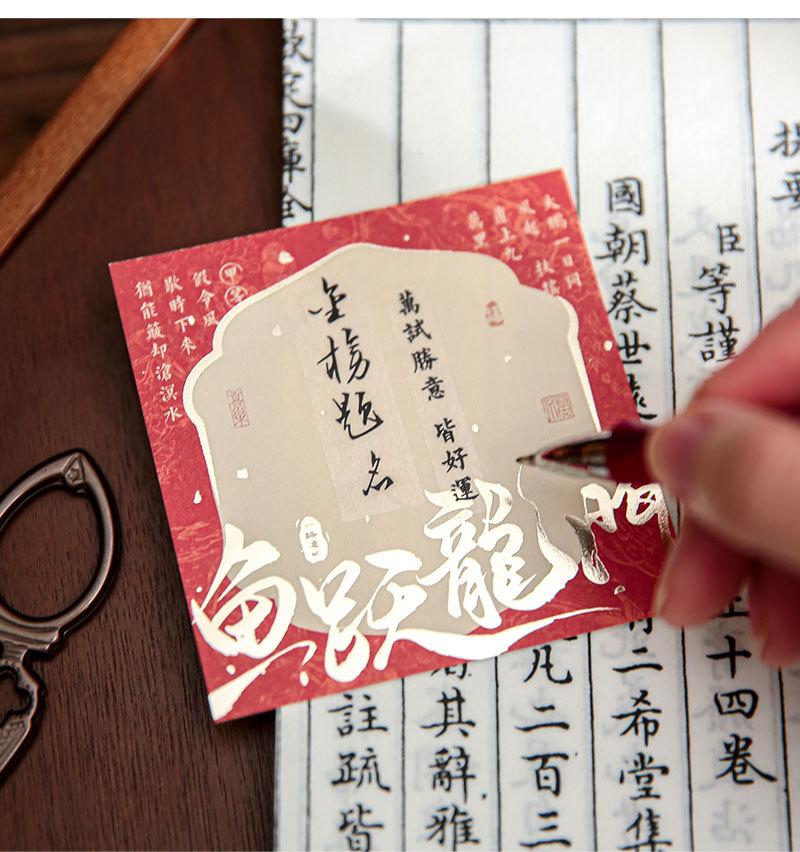 提要
臣等謹
十四卷
國朝蔡世遠
二希堂集
凡二百三
其辭雅
註疏皆
欽定四庫全
大鵬一日同
風起 扶搖
直上九
萬里
萬試勝意 皆好運
金榜題名
甲辰
假令風
歇時下來
猶能簸却滄溟水
一路連
魚跃龍門
福